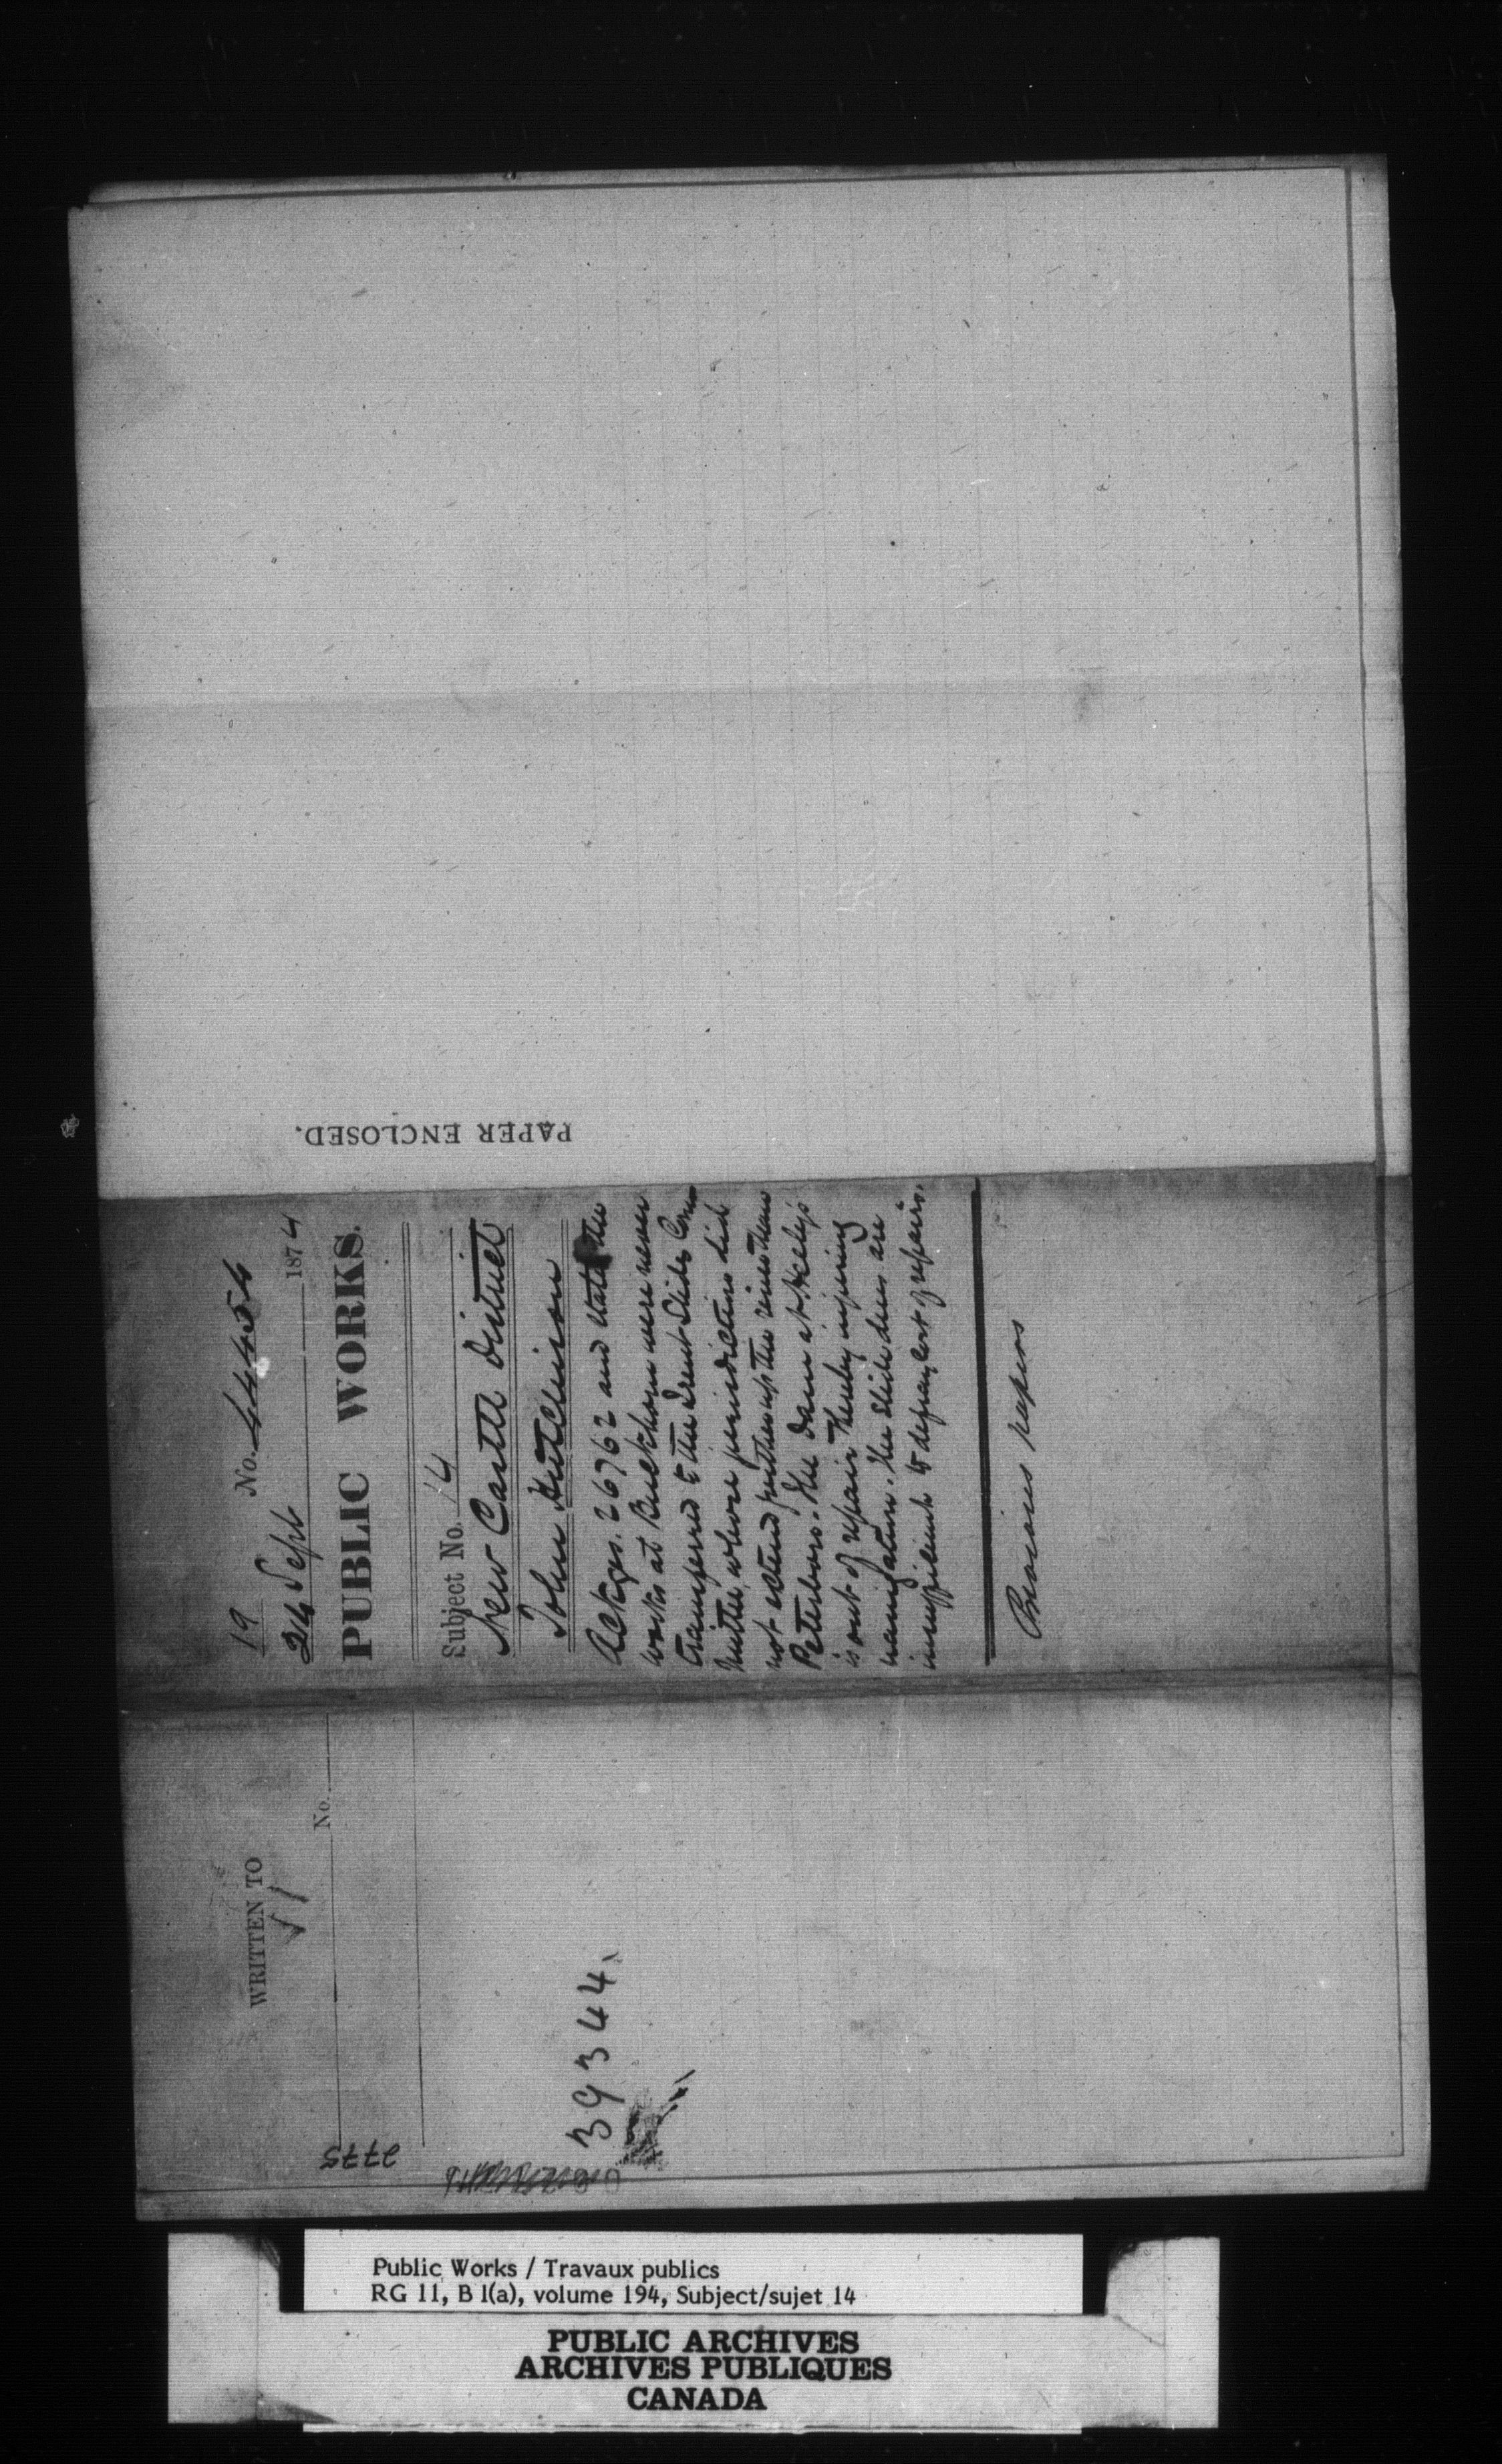 19 No. 44454
24 Sept 1874
PUBLIC WORKS.
Subject No. 14
New Castle District
John Hutchison
Ackgs. 26762 and states the
works at Buckhorn were never
transferred to the Trent Slides Com
mittee, whose jurisdiction did
not extend further up the river than
Peterboro. The dam at Heely's
is out of repair thereby injuring
navigation. The slide dues are
insufficient to defray cost of repairs.
Previous papers
PAPER ENCLOSED.
WRITTEN TO
No.
39344
2775
Public Works / Travaux publics
RG 11, B 1(a), volume 194, Subject/sujet 14
PUBLIC ARCHIVES
ARCHIVES PUBLIQUES
CANADA